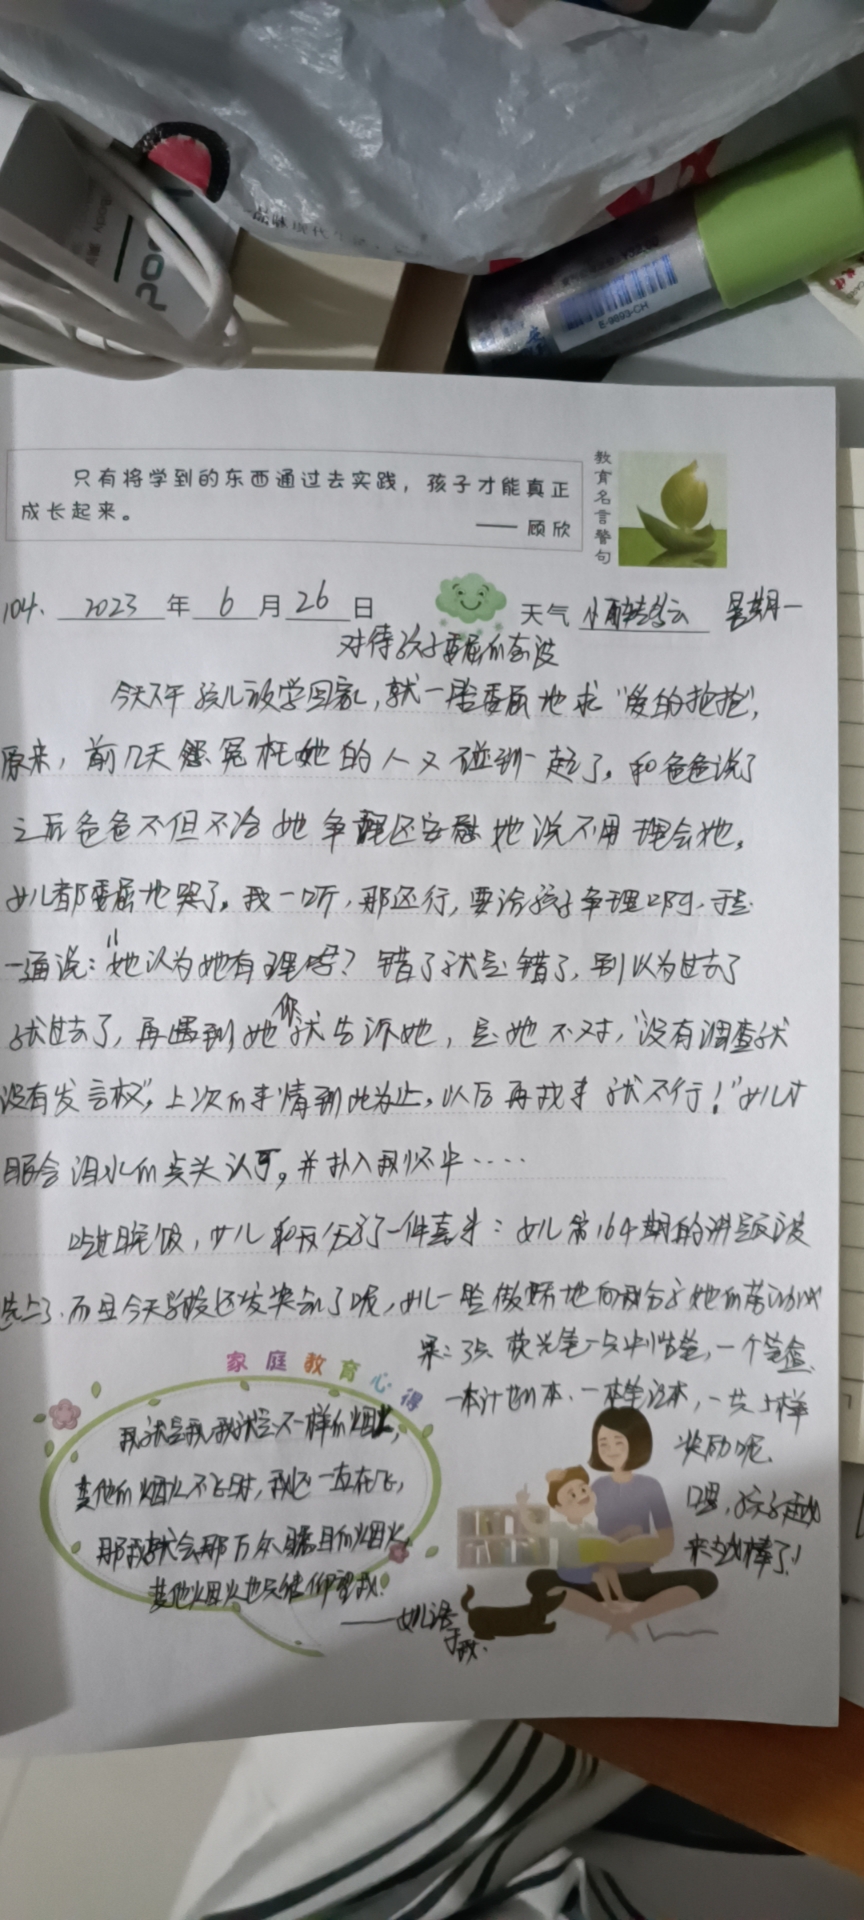 E-9893-CH
只有将学到的东西通过去实践，孩子才能真正
成长起来。
—— 顾欣
教育名言警句
104. 2023 年 6 月 26 日 天气 小雨转多云 星期一
对待孩子委屈的
今天下午孩儿放学回家，就一脸委屈地求“爱的抱抱”，
原来，前几天 冤枉她的人又碰到一起了。和爸爸说了
之后爸爸不但不给她争理还安慰她说不用理会她。
女儿都委屈地哭了。我一听，那还行，要给孩子争理 于是
一通说：“她认为她有理呀？错了就是错了，别以为过去了
就过去了，再遇到她你就告诉她，是她不对，“没有调查就
没有发言权”，上次的事情到此为止，以后再找事就不行！”女儿才
眼含泪水的点头认可，并扑入我怀中……
吃过晚饭，女儿和我分享了一件喜事：女儿第164期的讲题被
选上了.而且今天学校还发奖励了呢，女儿一脸傲娇地向我分享她的劳动成
果：3只荧光笔一只中性笔，一个笔盒、
一本计划本、一本笔记本，一共 样
奖励呢、
嗯，孩子越
来越棒了！
家庭教育心得
我就是我，我就是不一样的烟火，
其他的烟火不飞时，我还一直在飞，
那我就会那万众瞩目的烟火，
其他烟火也只能仰望我！
——女儿语
于我.